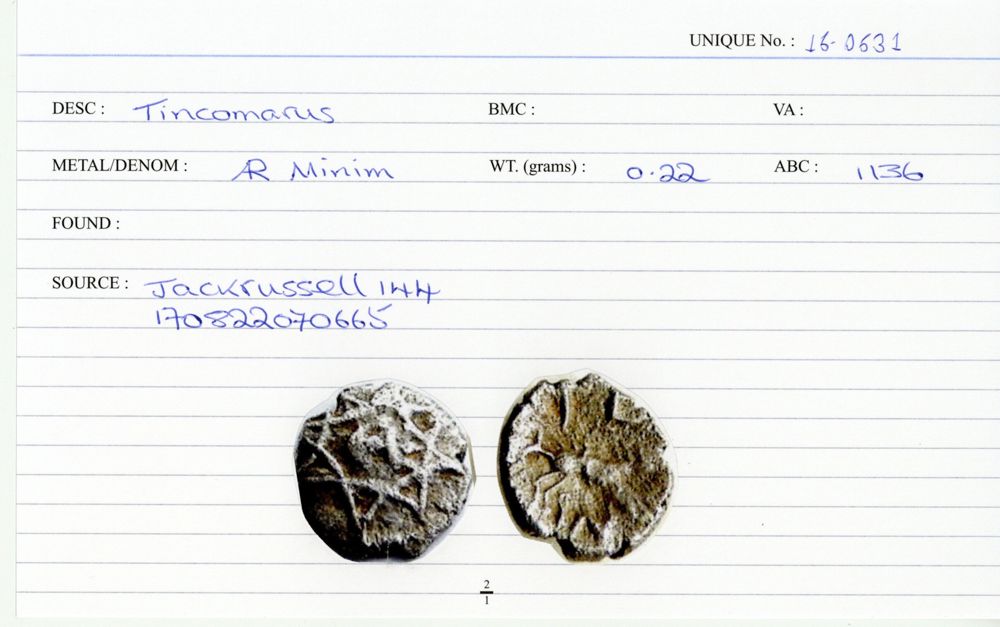 UNIQUE No. : 16-0631
DESC : Tincomarus BMC : VA :
METAL/DENOM : AR Minim WT. (grams) : 0.22 ABC : 1136
FOUND :
SOURCE : Jackrussell144
170822070665
2
1